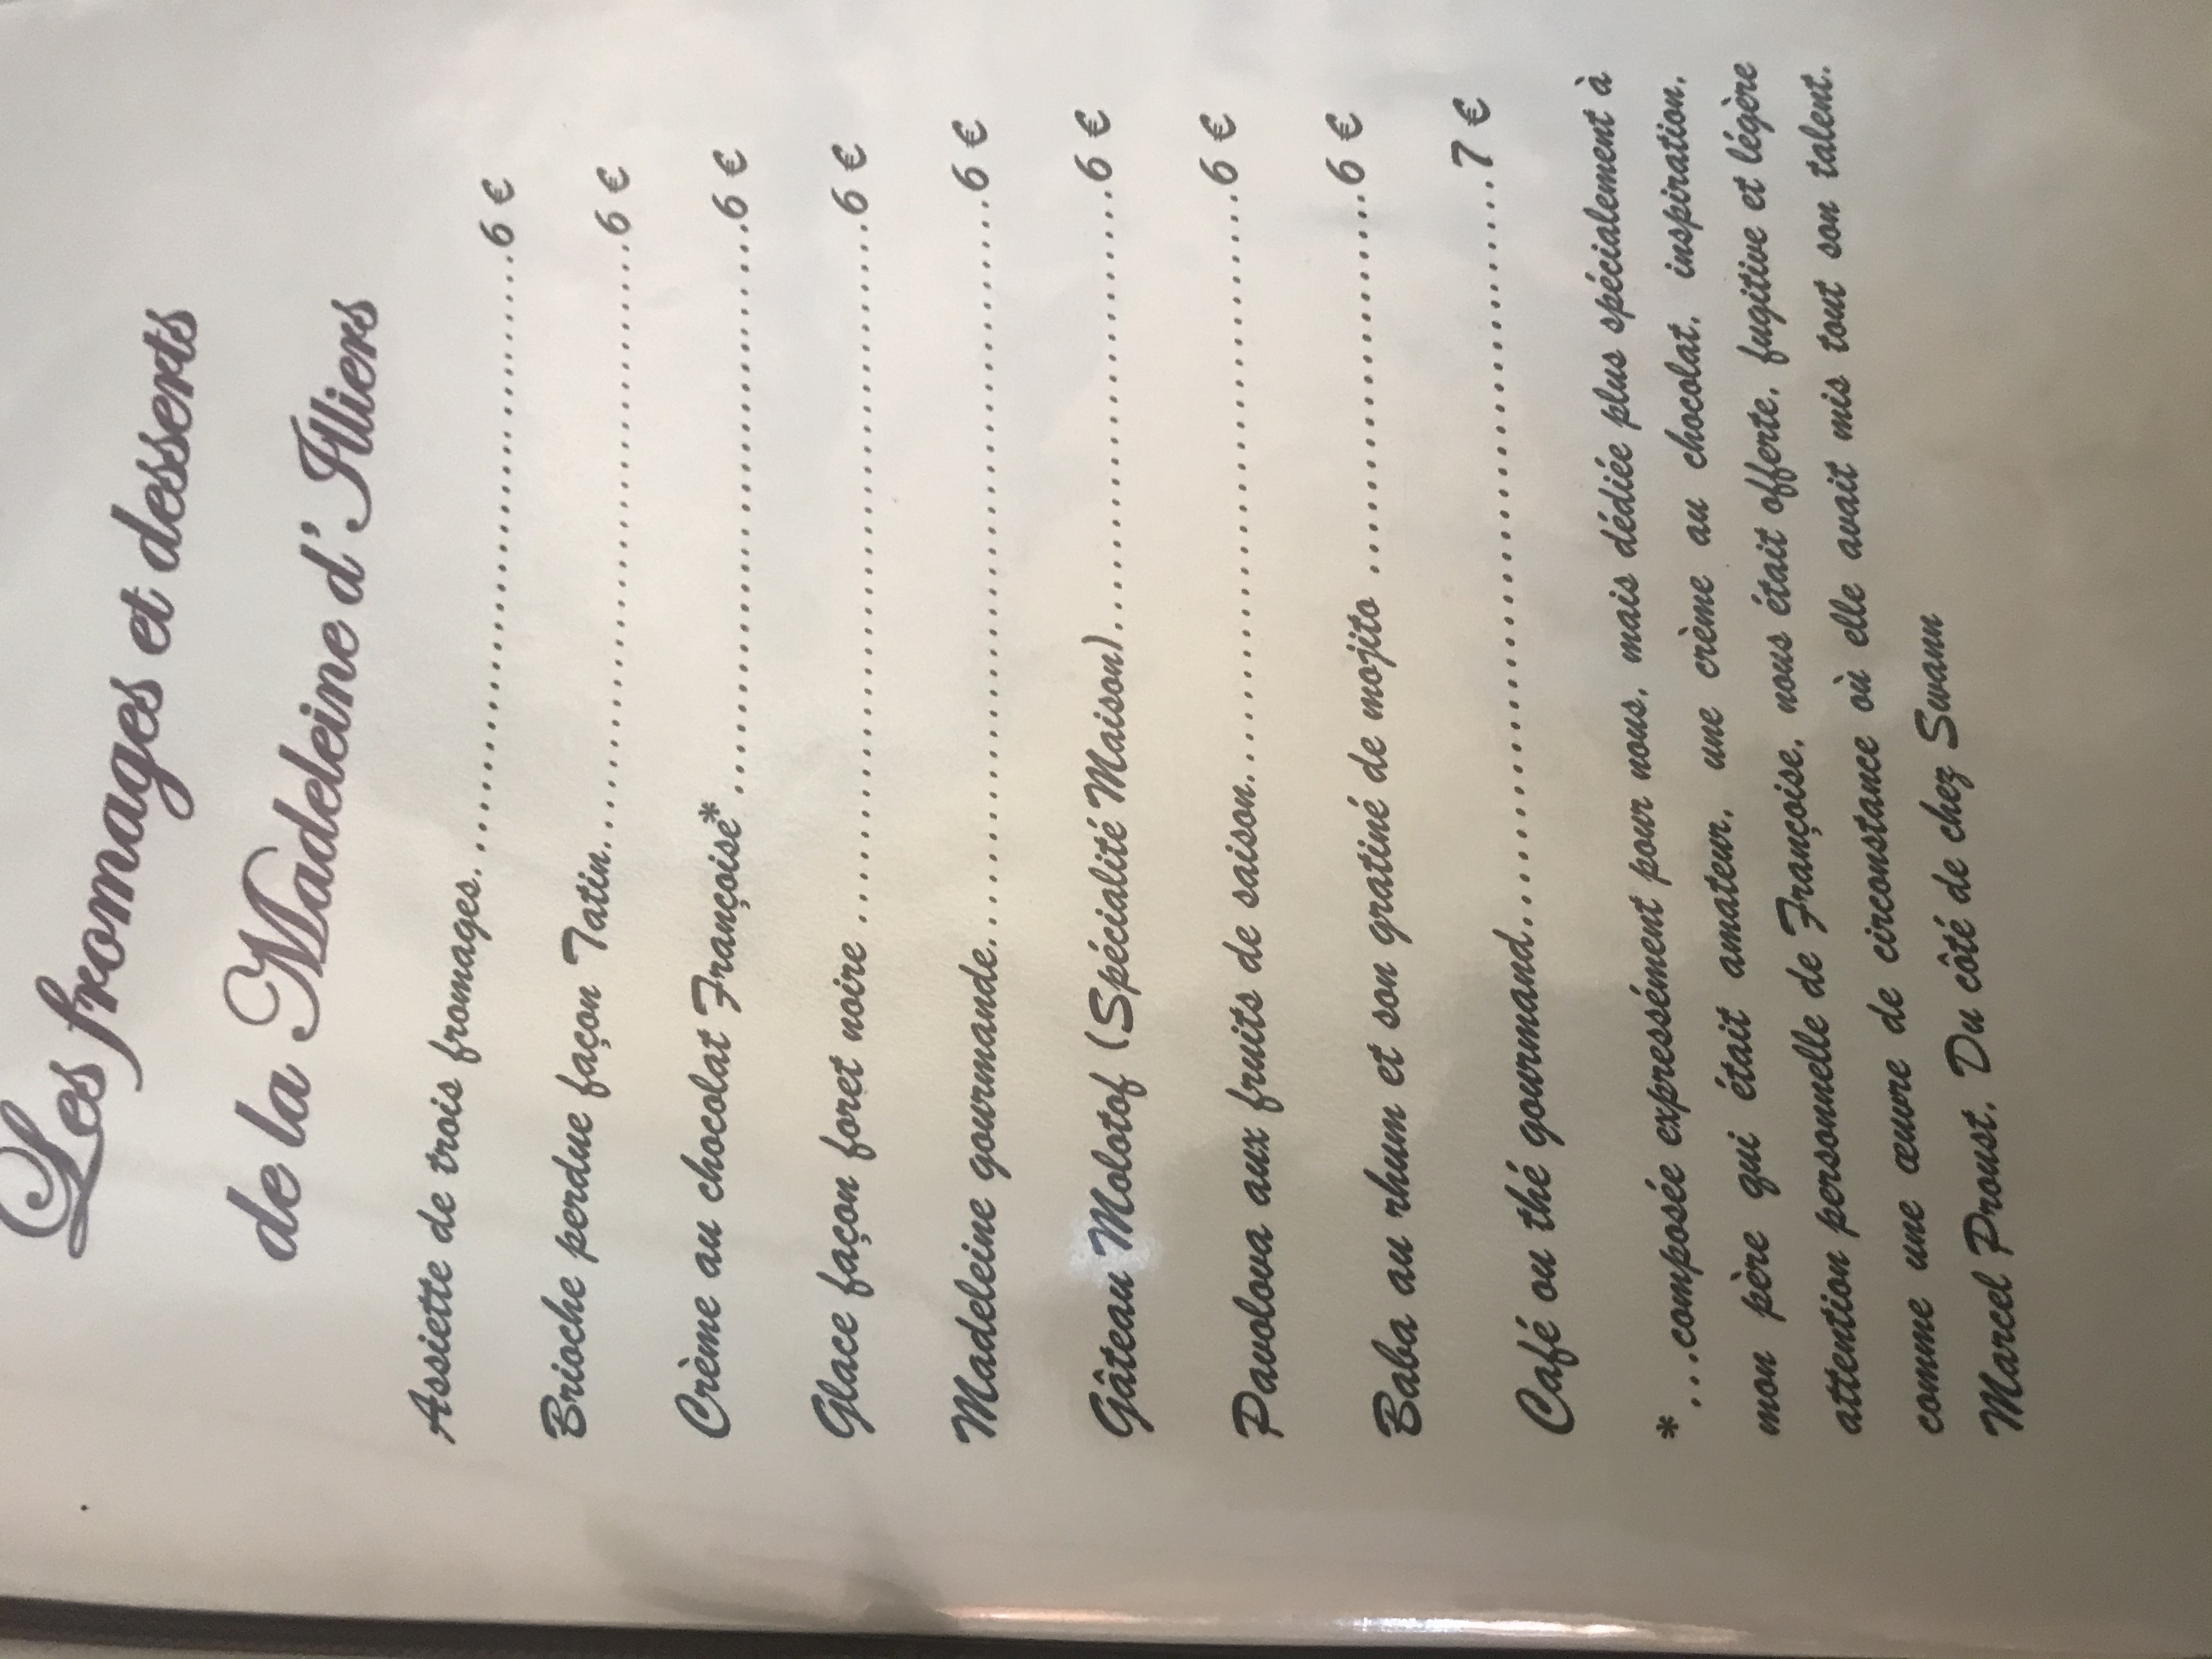 Les fromages et desserts
de la Madeleine d'Illiers
Assiette de trois fromages.......................................6 €
Brioche perdue façon Tatin.......................................6 €
Crème au chocolat Françoise* .......................................6 €
Glace façon foret noire .............................................6 €
Madeleine gourmande.............................................6 €
Gâteau Molotof (Spécialité Maison)..............................6 €
Pavolova aux fruits de saison......................................6 €
Baba au rhum et son gratiné de mojito ..........................6 €
Café ou thé gourmand..............................................7 €
* ...composée expressément pour nous, mais dédiée plus spécialement à
mon père qui était amateur, une crème au chocolat, inspiration,
attention personnelle de Françoise, nous était offerte, fugitive et légère
comme une œuvre de circonstance où elle avait mis tout son talent.
Marcel Proust, Du côté de chez Swann